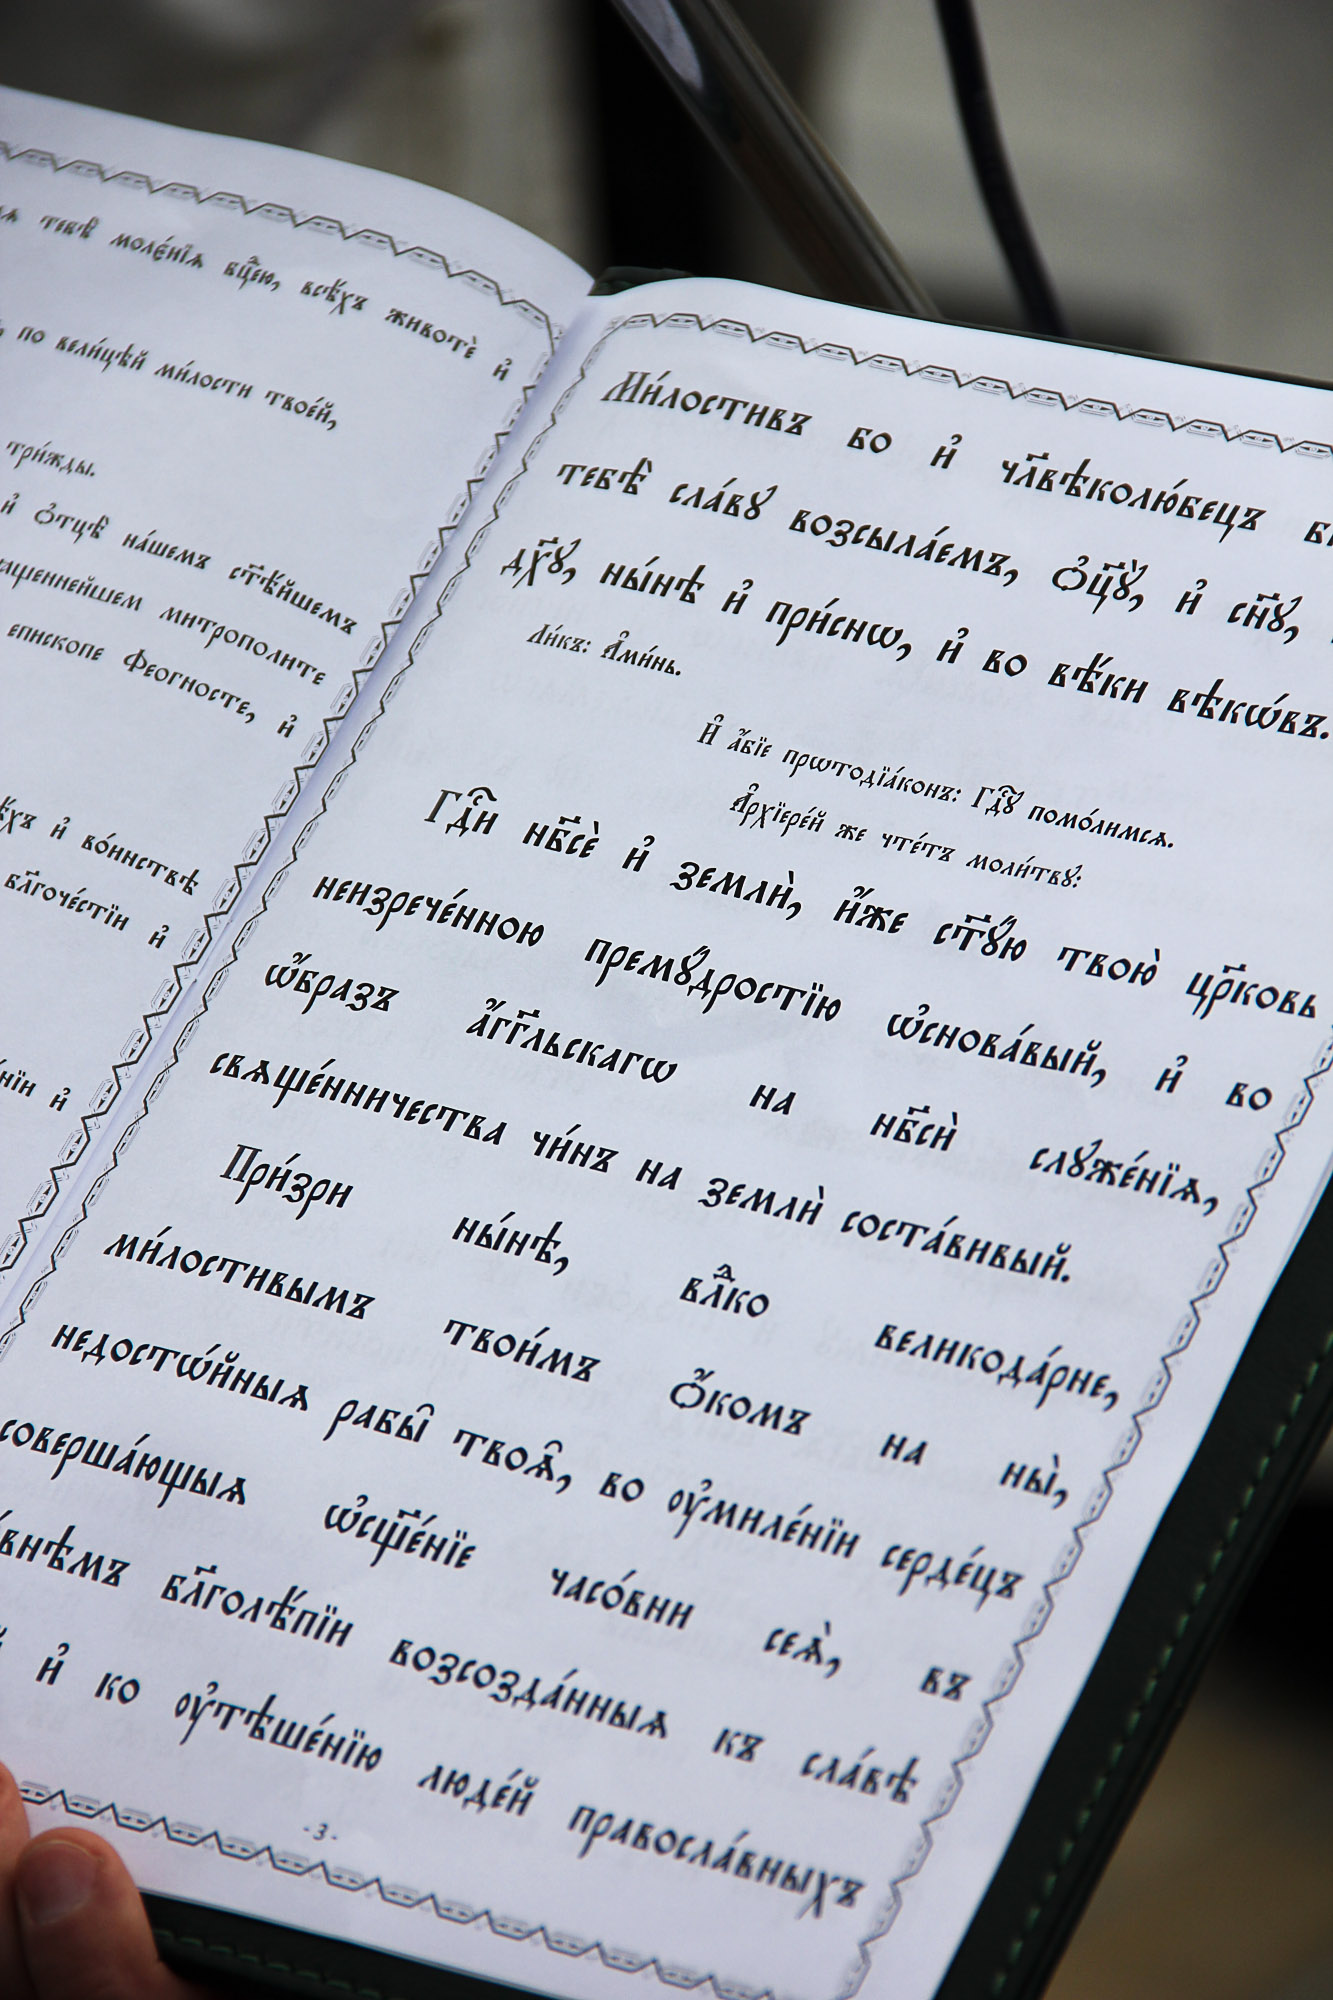 тебѣ̀ моле́нїѧ вц҃ею, всѣ́хъ животѐ и҆
по вели́цѣй ми́лости твое́й,
три́жды.
и҆ ѻ҆тцѣ̀ на́шемъ ст҃ѣ́йшемъ
митрополите
епископе Феогносте, и҆
и҆ во́инствѣ
бл҃гоче́стїи и҆
и҆
Ми́лостивъ бо и҆ чл҃вѣколю́бецъ
тебѣ̀ сла́вꙋ возсыла́емъ, ѻ҆ц҃ꙋ̀, и҆ сн҃ꙋ,
дх҃ꙋ, ны́нѣ и҆ при́снѡ, и҆ во вѣ́ки вѣкѡ́въ.
Ли́къ: А҆ми́нь.
И҆ а҆́бїе прѡтодїа́конъ: Гдⷭ҇ꙋ помо́лимсѧ.
А҆рхїере́й же чте́тъ моли́твꙋ:
Гдⷭ҇и нб҃сѐ и҆ землѝ, и҆́же ст҃ꙋ́ю твою̀ цр҃ковь
неизрече́нною премꙋ́дростїю ѡ҆снова́вый, и҆ во
ѡ҆́бразъ а҆́гг҃льскагѡ на нб҃сѝ слꙋже́нїѧ,
свѧще́нничества чи́нъ на землѝ соста́вивый.
При́зри ны́нѣ, вл҃ко великода́рне,
ми́лостивымъ твои́мъ ѻ҆́комъ на ны̀,
недостѡ́йныѧ рабы̑ твоѧ̑, во ᲂу҆миле́нїи серде́цъ
соверша́ющыѧ ѡ҆сщ҃е́нїе часо́вни сеѧ̀, въ
бл҃голѣ́пїи возсозда́нныѧ къ сла́вѣ
и҆ ко ᲂу҆тѣше́нїю люде́й правосла́вныхъ
-3-